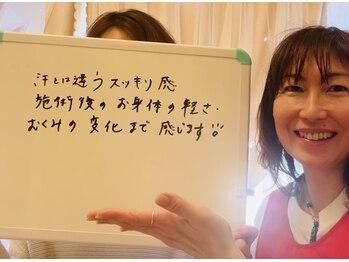 汗とは違うスッキリ感
施術後のお身体の軽さ、
むくみの変化まで感じます!!